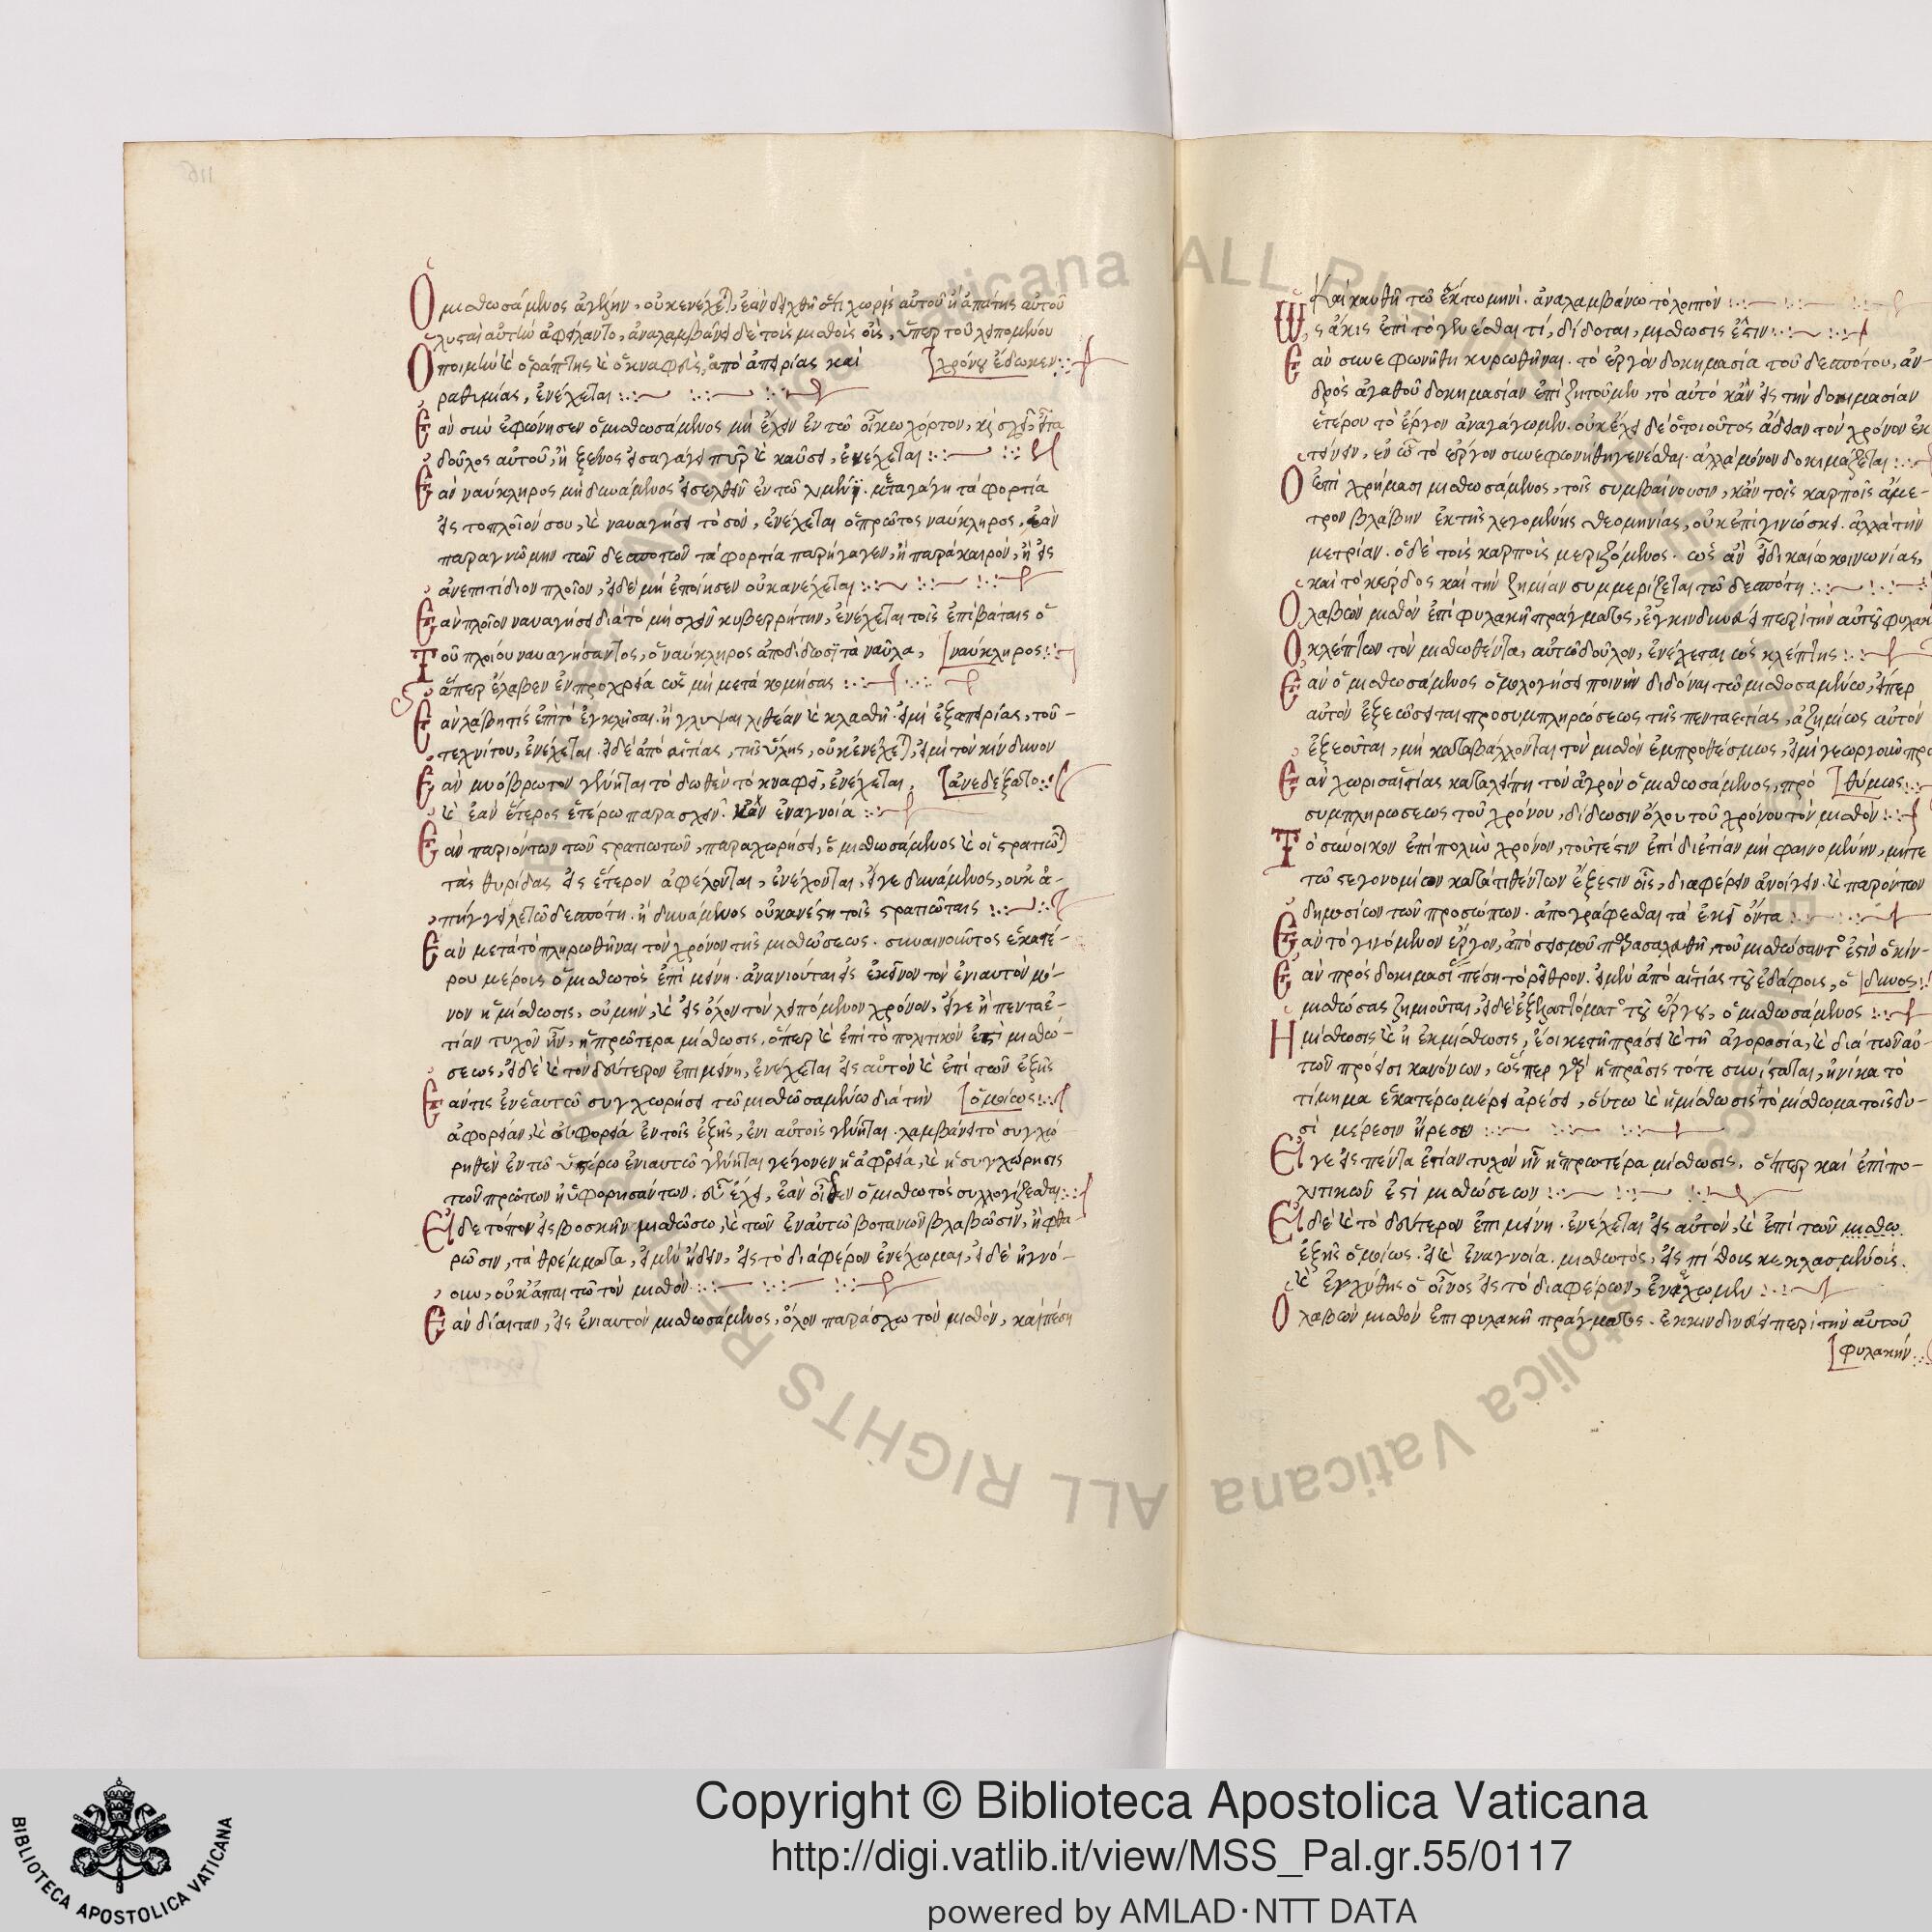 Ὁ μισθωσάμενος ἀγέλην, οὐκ ἐνέχεται, ἐὰν δειχθῆ ὅτι χωρὶς αὐτοῦ ἢ ἀπάτης αὐτοῦ
λησταὶ αὐτὴν ἀφείλαντο, ἀναλαμβάνει δὲ τοὺς μισθοὺς οὓς, ὑπὲρ τοῦ λειπομένου
χρόνου ἔδωκεν
Ὁ ποιμὴν καὶ ὁ ῥάπτης καὶ ὁ κναφεὺς, ἀπὸ ἀπειρίας καὶ
ραθυμίας, ἐνέχεται
Ἐὰν συνεφώνησεν ὁ μισθωσάμενος μὴ ἔχειν ἐν τῶ οἴκω χόρτον,
δοῦλος αὐτοῦ, ἢ ξένος εἰσαγάγει πῦρ καὶ καύσει, ἐνέχεται
Ἐὰν ναύκληρος μὴ δυνάμενος εἰσελθεῖν ἐν τῶ λιμένι. μεταγάγη τὰ φορτία
εἰς τὸ πλοῖόν σου, καὶ ναυαγήσει τὸ σὸν, ἐνέχεται ὁ πρῶτος ναύκληρος, ἐὰν
παρὰ γνώμην τῶν δεσποτῶν τὰ φορτία παρήγαγεν, ἢ παρὰ καιρὸν, ἢ εἰς
ἀνεπιτίδιον πλοῖον, εἰ δὲ μὴ ἐποίησεν οὐκ ἀνέχεται
Ἐὰν πλοῖον ναυαγήσει διὰ τὸ μὴ σχεῖν κυβερνήτην, ἐνέχεται τοῖς ἐπιβάταις ὁ
ναύκληρος
Τοῦ πλοίου ναυαγήσαντος, ὁ ναύκληρος ἀποδίδωσι τὰ ναῦλα,
ἅπερ ἔλαβεν ἐν προχρεία ὡς μὴ μετακομήσας
Ἐὰν λάβη τὶς ἐπὶ τὸ ἐγκλῆσαι. ἢ γλυψαι λιθέαν καὶ κλασθῆ. εἰ μὲν ἐξ ἀπειρίας, τοῦ
τεχνίτου, ἐνέχεται. εἰ δὲ ἀπὸ αἰτίας, τῆς ὕλης, οὐκ ἐνέχεται, εἰ μὴ τὸν κίνδυνον
ἀνεδέξατο
Ἐὰν μυόβρωτον γένηται τὸ δωθὲν τὸ κναφεῖ, ἐνέχεται,
καὶ ἐὰν ἕτερος ἑτέρω παράσχειν. κἂν ἐν ἀγνοία
Ἐὰν παριόντων τῶν στρατιωτῶν, παραχωρήσει, ὁ μισθωσάμενος καὶ οἱ στρατιῶται
τὰς θυρίδας εἰς ἕτερον ἀφέλονται, ἐνέχονται, εἴγε δυνάμενος, οὐκ ἀ-
πήγγειλε τῶ δεσπότη. ἢ δυνάμενος οὐκ ἀνέστη τοῖς στρατιώταις
Ἐὰν μετὰ τὸ πληρωθῆναι τὸν χρόνον τῆς μισθώσεως. συναινοῦντος ἑκατέ-
ρου μέροις ὁ μισθωτὸς ἐπιμείνη. ἀνανιοῦται εἰς ἐκεῖνον τὸν ἐνιαυτὸν μό-
νον ἡ μίσθωσις, οὐ μὴν, καὶ εἰς ὅλον τὸν λειπόμενον χρόνον, εἴγε ἢ πενταε-
τίαν τυχὸν ἦν, ἡ πρωτέρα μίσθωσις. ὅπερ καὶ ἐπὶ τὸ πολιτικὸν ἐστὶ μισθώ-
σεως, εἰ δὲ καὶ τὸν δεύτερον ἐπιμείνη, ἐνέχεται εἰς αὐτὸν καὶ ἐπὶ τῶν ἑξῆς
ὁμοίως
Ἐὰν τις ἐνεαυτῶ συγχωρήσει τῶ μισθωσαμένω διὰ τὴν
ἀφορείαν, καὶ εὐφορεία ἐν τοῖς ἑξῆς, ἐνιαυτοῖς γένηται. λαμβάνει τὸ συγχω-
ρηθὲν ἐν τῶ ὑστέρω ἐνιαυτῶ γένηται γέγονεν ἡ ἀφορεία, καὶ ἡ συγχώρησις
τῶν πρώτων ἠυφορησάντων. ἐὰν ὁ μισθωτὸς συλλογίζεσθαι
Εἰ δὲ τόπον εἰς βοσκὴν μισθώσω, καὶ τῶν ἐν αὐτῶ βοτανῶν βλαβῶσιν, ἢ φθα-
ρῶσιν, τὰ θρέμματα, εἰ μὲν ἤδειν, εἰς τὸ διαφέρον ἐνέχωμαι, εἰ δὲ ἠγνό-
ουν, οὐκ ἀπαιτῶ τὸν μισθόν
Ἐὰν δίαιταν, εἰς ἐνιαυτὸν μισθωσάμενος, ὅλον παράσχω τὸν μισθὸν, καὶ πέση
ἢ καὶ καυθῆ τῶ ἕκτω μηνὶ. ἀναλαμβάνω τὸ λοιπὸν
Ὡσάκις ἐπὶ τὸ γενέσθαι τί, δίδοται, μίσθωσις ἐστιν
Ἐὰν συνεφωνήθη κυρωθῆναι. τὸ ἔργον δοκημασία τοῦ δεσπότου, ἀν-
δρὸς ἀγαθοῦ δοκημασίαν ἐπιζητοῦμεν, τὸ αὐτὸ κἂν εἰς τὴν δοκιμασίαν
ἑτέρου τὸ ἔργον ἀναγάγωμεν. οὐκ ἔχει δὲ ὁ τοιοῦτος ἄδειαν τὸν χρόνον ἐκ
τείνειν, ἐν ὧ τὸ ἔργον συνεφωνήθη γενέσθαι. ἀλλὰ μόνον δοκιμάζεται
Ὁ ἐπὶ χρήμασι μισθωσάμενος, τοῖς συμβαίνουσιν, κἂν τοῖς καρποῖς ἄμε-
τρον βλάβην ἐκ τῆς λεγομένης θεομηνίας, οὐκ ἐπιγινώσκει. ἀλλὰ τὴν
μετρίαν. ὁ δὲ τοῖς καρποῖς μεριζόμενος. ὡς ἂν εἰ δικαίω κοινωνίας,
καὶ τὸ κέρδος καὶ τὴν ζημίαν συμμερίζεται τῶ δεσπότη
Ὁ λαβὼν μισθὸν ἐπὶ φυλακῆ πράγματος, ἐγκινδυνεύει περὶ τὴν αὐτοῦ φυλακ
Ὁ κλέπτων τὸν μισθωθέντα, αὐτῶ δοῦλον, ἐνέχεται ὡς κλέπτης
Ἐὰν ὁ μισθωσάμενος ὁμολογήσει ποινὴν διδόναι τῶ μισθοσαμένω, εἴπερ
αὐτὸν ἐξεώσει προσυμπληρώσεως τῆς πενταετίας, ἀζημίως αὐτὸν
ἐξεοῦται, μὴ καταβάλλονται τὸν μισθὸν ἐμπροθέσμως, εἰ μὴ γεωργοῦν προ
θύμως
Ἐὰν χωρὶς αἰτίας καταλείπη τὸν ἀγρὸν ὁ μισθωσάμενος, πρὸ
συμπληρωσεως τοῦ χρόνου, δίδωσιν ὅλου τοῦ χρόνου τὸν μισθὸν
Τὸ σύνοικον ἐπὶ πολὺν χρόνον, τουτέστιν ἐπὶ διετίαν μὴ φαινομένην, μήτε
τῶ στεγονομίων κατατιθέντων ἔξεστιν οἷς, διαφέρειν ἀνοίγειν. καὶ παρόντων
δημοσίων τῶν προσώπων. ἀπογράφεσθαι τὰ ἐκεῖ ὄντα
Ἐὰν τὸ γινόμενον ἔργον, ἀπὸ σεισμοῦ παρασαλευθῆ, τοῦ μισθώσαντος ἐστὶν ὁ κίν-
δυνος
Ἐὰν πρὸς δοκιμασι πέση τὸ ῥεῖθρον. εἰ μὲν ἀπὸ αἰτίας τοῦ ἐδάφοις, ὁ
μισθώσας ζημιοῦται, εἰ δὲ ἐξ ἐλαττώματος τοῦ ἔργου, ὁ μισθωσάμενος
Ἡ μίσθωσις καὶ ἡ ἐκμίσθωσις, ἔοικε τῆ πράσει καὶ τῆ ἀγορασία, καὶ διὰ τῶν αὐ-
τῶν πρόεισι κανόνων, ὥσπερ γὰρ ἡ πρᾶσις τότε συνίσταται, ἡνίκα τὸ
τίμημα ἑκατέρω μέρει ἀρέσει, οὕτω καὶ ἡ μίσθωσις τὸ μίσθωμα τοῖς δυ-
σὶ μέρεσιν ἤρεσεν
Εἴγε εἰς πέντα ἐτίαν τυχὸν ἦν ἡ πρωτέρα μίσθωσις. ὅπερ καὶ ἐπὶ πο-
λιτικῶν ἐστὶ μισθώσεων
Εἰ δὲ καὶ τὸ δεύτερον ἐπιμείνη. ἐνέχεται εἰς αὐτὸν, καὶ ἐπὶ τῶν μισθω
ἑξῆς ὁμοίως. εἰ καὶ ἐν ἀγνοία. μισθωτὸς, εἰς πίθοις κεκλασμένοις.
καὶ ἐγχυθῆς ὁ οἶνος εἰς τὸ διαφέρων, ἐνεχωμεν
Ὁ λαβὼν μισθὸν ἐπι φυλακῆ πράγματος. ἐκκινδινεύει περὶ τὴν αὐτοῦ
φυλακήν
Copyright © Biblioteca Apostolica Vaticana
http://digi.vatlib.it/view/MSS_Pal.gr.55/0117
powered by AMLAD·NTT DATA
BIBLIOTECA APOSTOLICA VATICANA